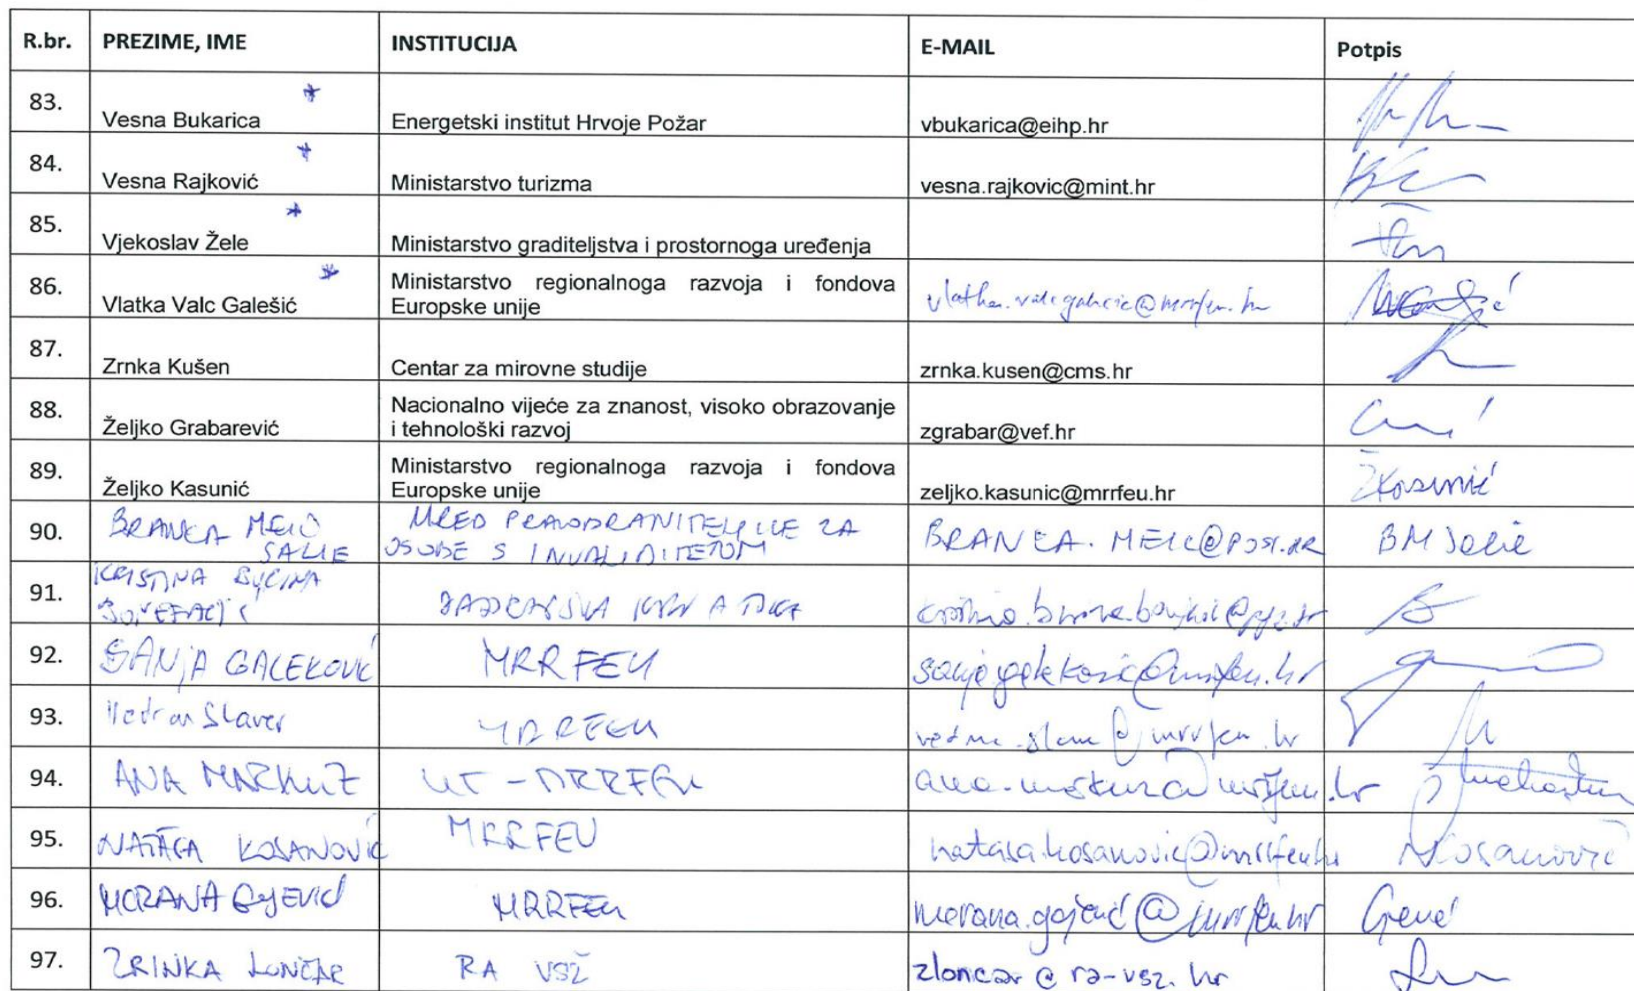 R.br. PREZIME, IME INSTITUCIJA E-MAIL Potpis
83. Vesna Bukarica Energetski institut Hrvoje Požar vbukarica@eihp.hr
84. Vesna Rajković Ministarstvo turizma vesna.rajkovic@mint.hr
85. Vjekoslav Žele Ministarstvo graditeljstva i prostornoga uređenja
86. Vlatka Valc Galešić Ministarstvo regionalnoga razvoja i fondova
Europske unije
87. Zrnka Kušen Centar za mirovne studije zrnka.kusen@cms.hr
88. Željko Grabarević Nacionalno vijeće za znanost, visoko obrazovanje
i tehnološki razvoj zgrabar@vef.hr
89. Željko Kasunić Ministarstvo regionalnoga razvoja i fondova
Europske unije zeljko.kasunic@mrrfeu.hr ŽKasunić
90. BRANKA MEIĆ URED PRAVOBRANITELJICE ZA
SALIE OSOBE S INVALIDITETOM BRANKA.MEIC@POSI.HR
91. KRISTINA
92. SANJA GALEKOVIĆ MRRFEU
93. Vedran Slaver MRRFEU
94. ANA MRRFEU
95. NATAŠA KOSANOVIĆ MRRFEU natasa.kosanovic@mrrfeu.hr NKosanović
96. MORANA GOJEVIĆ MRRFEU
97. ZRINKA LONČAR RA VSŽ zloncar@ra-vsz.hr